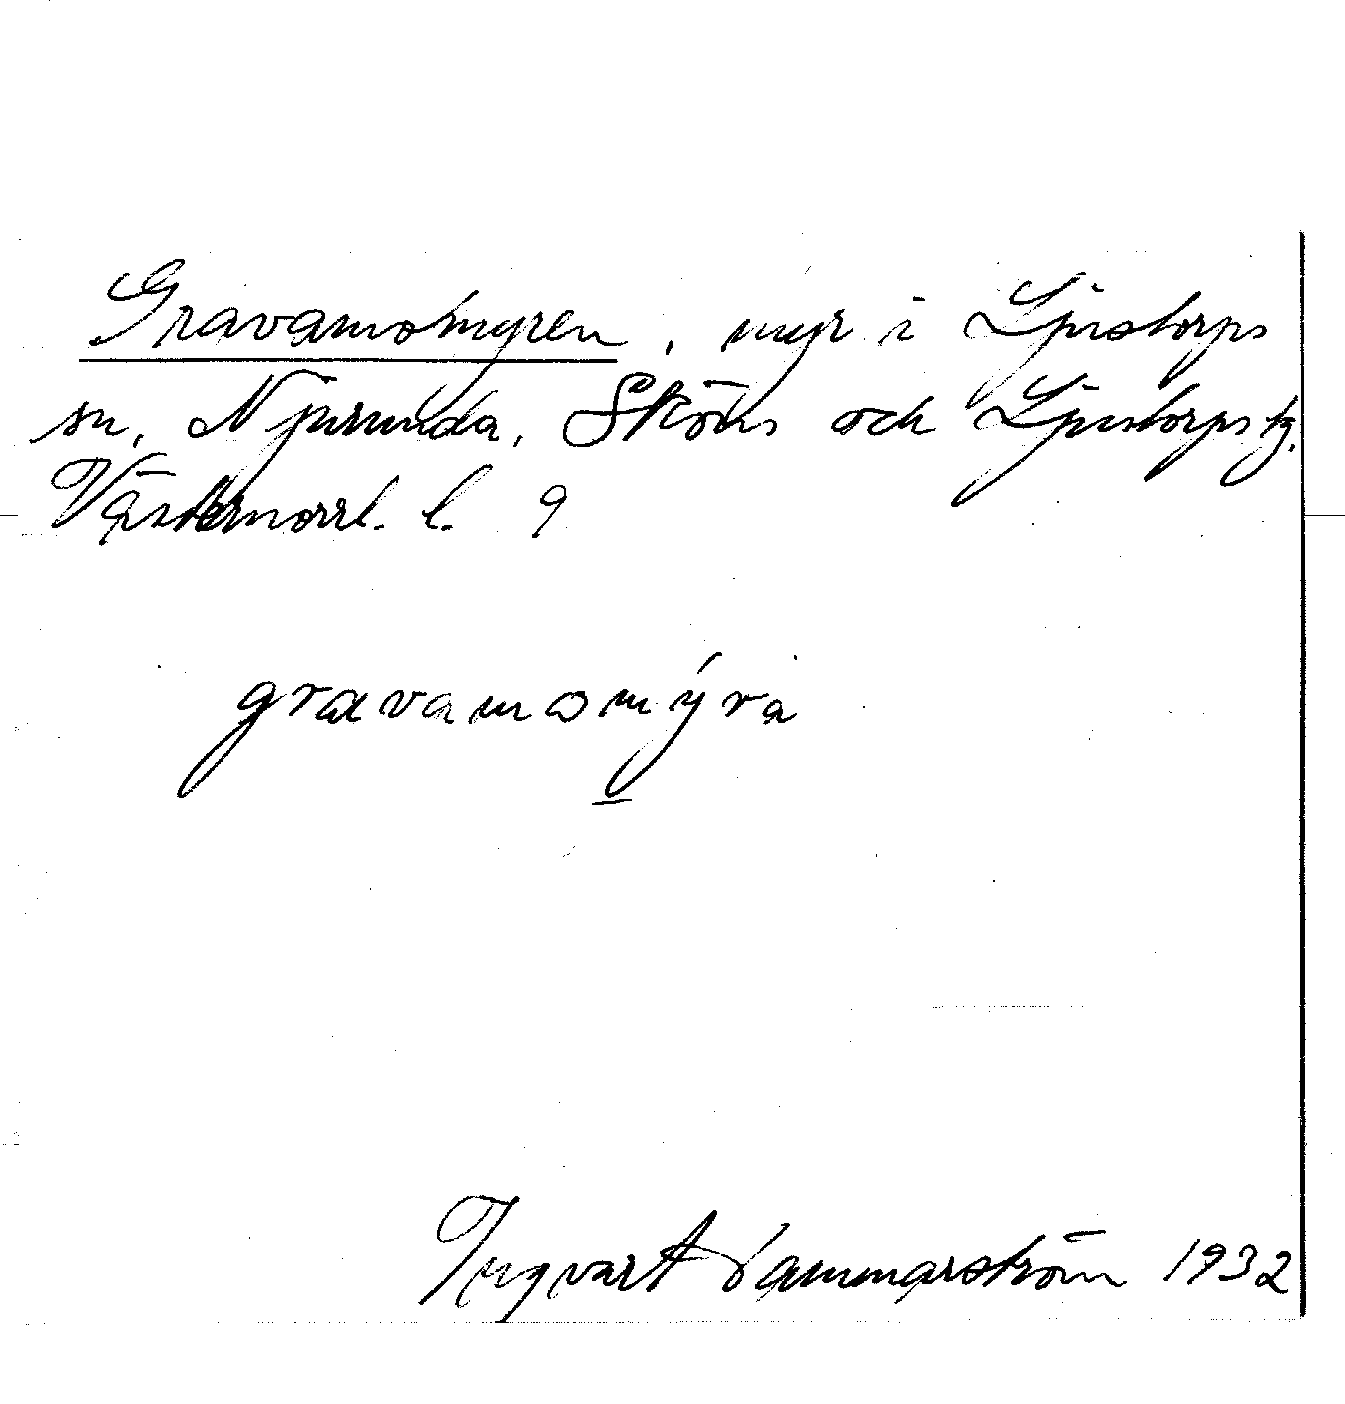 Gravamomyren, myr i Ljustorps
sn, Njurunda, Sköns och Ljustorps tg.
Västernorrl. l. 9
gravamomýra
Ingvart Hammarström 1932